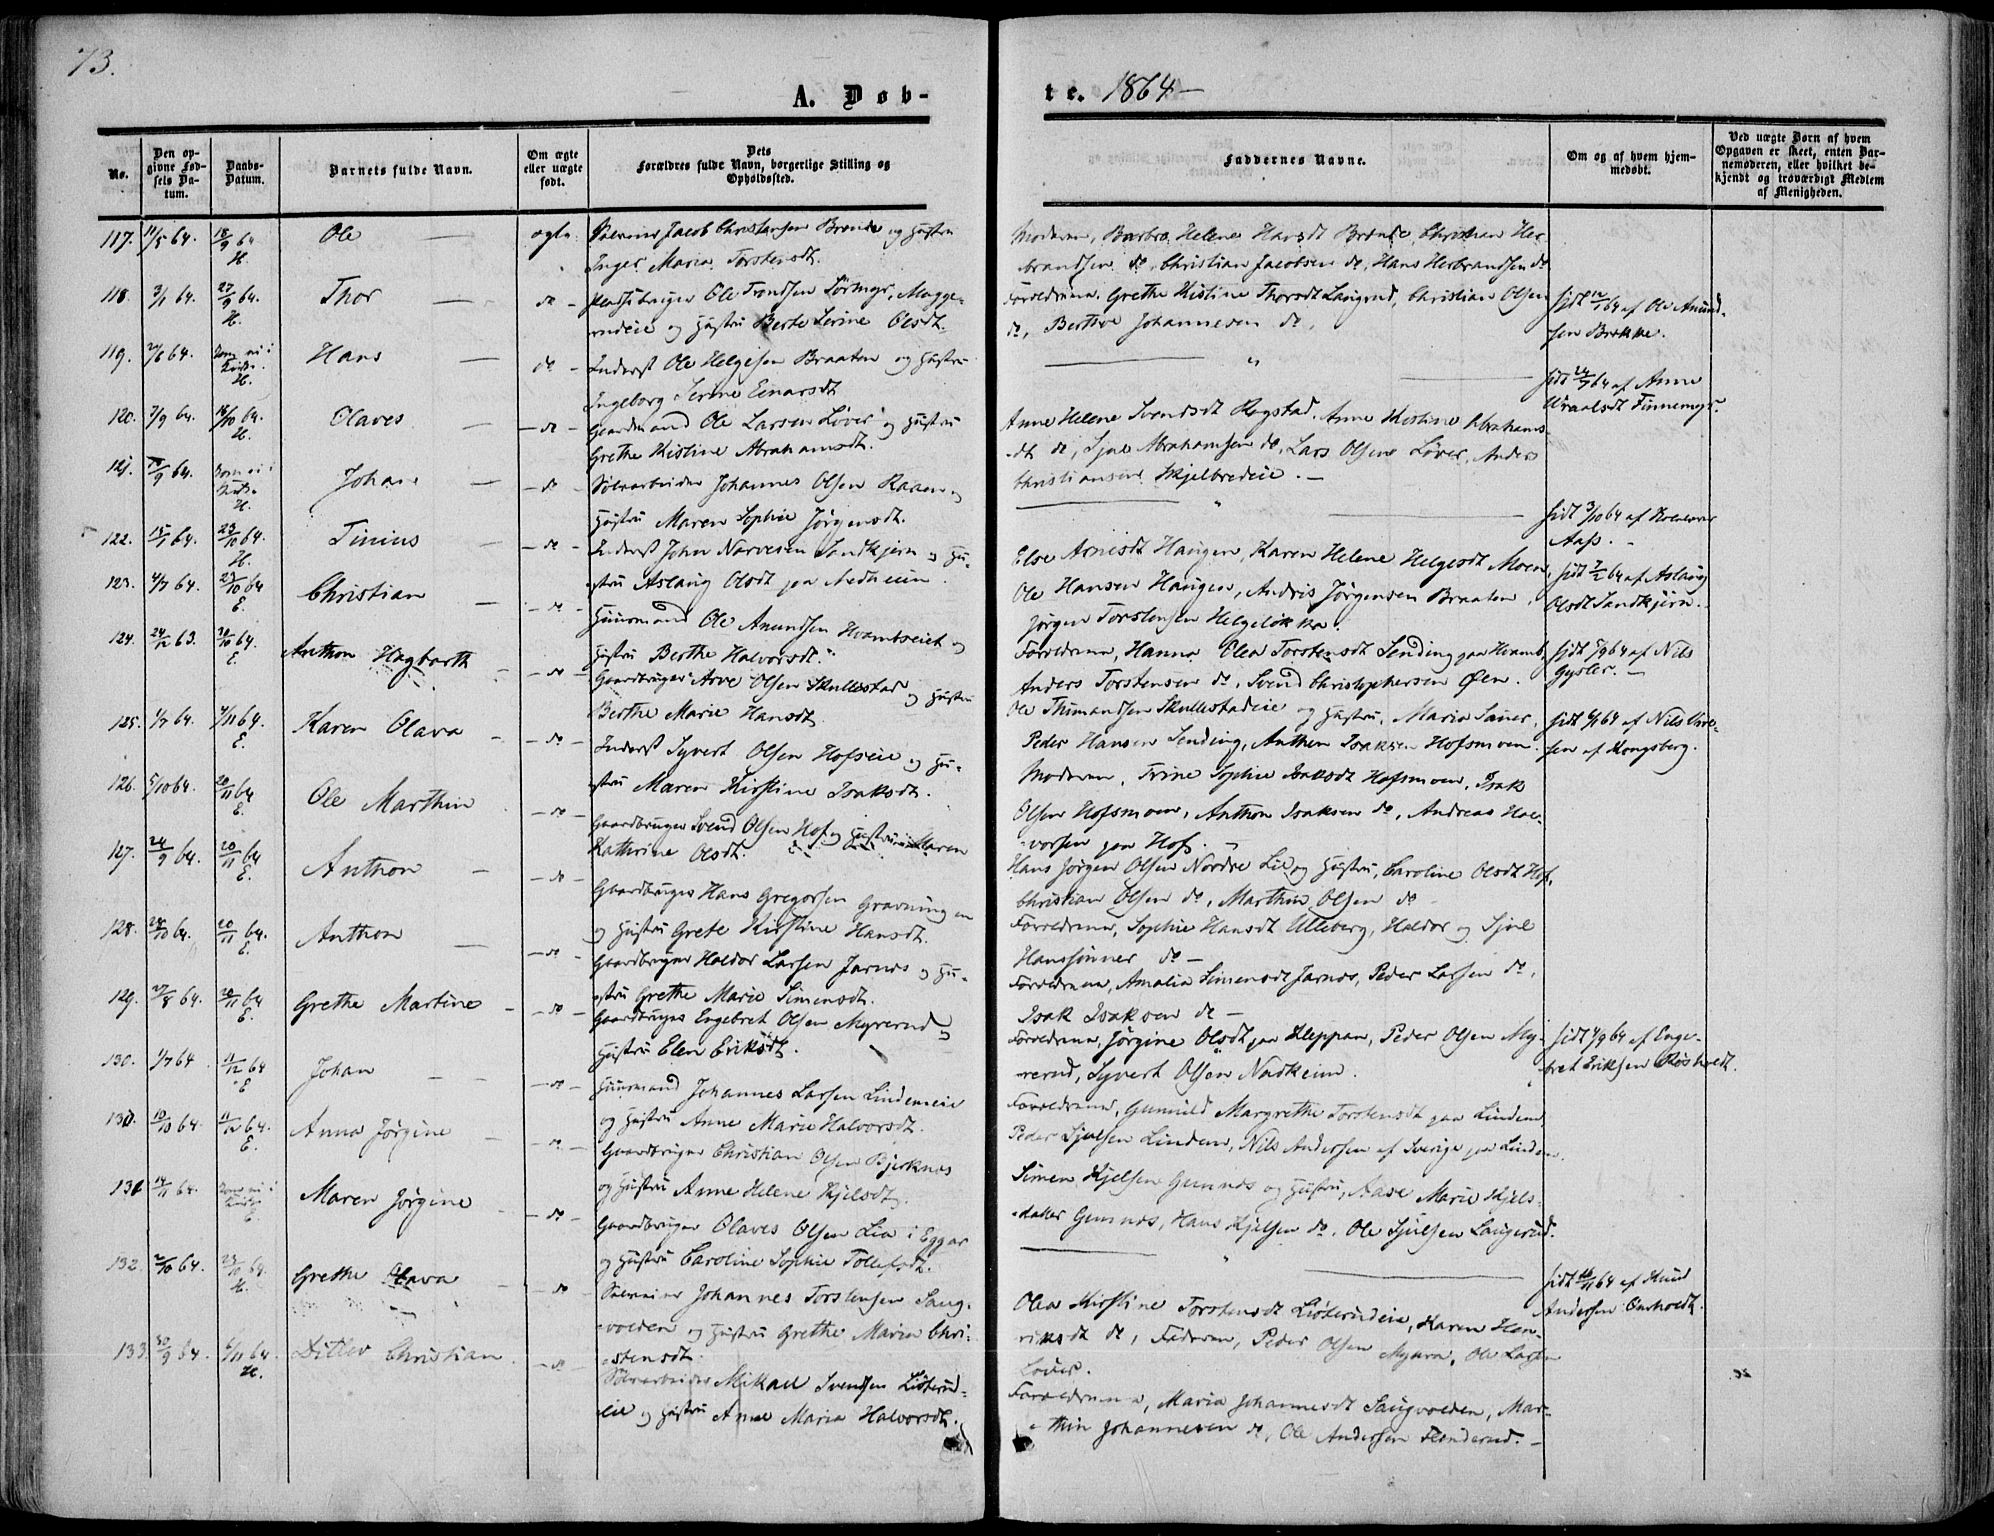 73.
A. Døb-
te. 1864 –
No.
Den op-
givne Fød-
sels Da-
tum.
Daabs-
Datum.
Barnets fulde Navn.
Om ægte
eller uægte
født.
Dets
Forældres fulde Navn, borgerlige Stilling og
Opholdssted.
Faddernes Navne.
Om og af hvem hjem-
medøbt.
Ved uægte Børn af hvem
Opgaven er skeet, enten Bar-
nemoderen, eller hvilket be-
kjendt og troværdigt Medlem
af Menigheden.
117. 11/5 64. 18/9 64 H. Ole — Jacob Christensen Brænde og Hustru
Inger Maria Torstensdt.
Moderen, Barbro Helene Hansdt Brænde, Christian Her-
brandsen do, Christian Jacobsen do, Hans Herbrandsen do
118. 3/1 64. 27/9 64. H. Thor — do — Pladsbruger Ole Trondsen Lørmyr, Magge-
rudeie og Hustru Berte Serine Olsdt.
Forældrene, Grethe Kistine Thorsdt Langrud, Christian Olsen
do, Berthe Johannesen do,
hjdt 12/1 64 af Ole Amund-
sen Brekke.
119. 2/6 64. Kom ei i Kirke. H. Hans — do — Inderst Ole Helgesen Braaten og Hustru
Ingeborg Serine Einarsdt
— " —
hjdt 64 af Anne
Wraalsdt Finnemyr.
120. 7/9 64. 16/10 64. H. Olaves — do — Gaardmand Ole Larsen Løver og Hustru
Grethe Kistine Abrahamsdt.
Anne Helene Svendsdt Rogstad, Anne Kistine Abrahams-
dt do, Sjul Abrahamsen do, Lars Olsen Løver, Anders
Christiansen Skjelbredeie. —
121. 9 64. Kom ei i Kirke H. Johan — do — Sølvarbeider Johannes Olsen Raaen og
Hustru Maren Sophie Jørgensdt.
— " —
hjdt 3/10 64 af
Aass. —
122. 15/1 64. 23/10 64. H. Tinius — do — Inderst John Narvesen Sandkjern og Hu-
stru Aslaug Olsdt paa Nedheim.
Else Arnesdt Haugen, Karen Helene Helgesdt Moen,
Ole Hansen Haugen, Andris Jørgensen Braaten,
Jørgen Torstensen Helgeløkka.
hjdt 7/2 64 af Aslaug
Olsdt Sandkjern.
123. 4/7 64. 23/10 64 E. Christian — do — Huusmand Ole Amundsen Hvambseiet og
Hustru Berthe Halvorsdt.
Forældrene, Hanna Olea Torstensdt Sending paa Hvamb,
Anders Torstensen do, Svend Christophersen Øen.
hjdt 5/9 64 af Nils
Gysler. —
124. 24/12 63. 30/10 64. E. Anthon Hagbarth — do — Gaardbruger Arve Olsen Skullestad og Hustru
Berthe Marie Hansdt
Ole Thimandsen Skullestadeie og Hustru, Maria Sauer,
Peder Hansen Sending, Anthon Isaksen Hofsmoen.
hjdt 6/1 64 af Nils
sen af Kongsberg.
125. 1/7 64. 4/11 64. E. Karen Olava — do — Inderst Syvert Olsen Hofseie og Hu-
stru Maren Kirstine Isaksdt.
Moderen, Trine Sophie Isaksdt Hofsmoen, Isak
Olsen Hofsmoen, Anthon Isaksen do, Andreas Hal-
vorsen paa Hof. —
126. 5/10 64. 20/11 64 E. Ole Marthin — do — Gaardbruger Svend Olsen Hof og Hustru Maren
Kathrine Olsdt.
Hans Jørgen Olsen Nordre Lie og Hustru, Caroline Olsdt Hof,
Christian Olsen do, Marthin Olsen do
127. 24/9 64. 20/11 64 E. Anthon — do — Gaardbruger Hans Gregorsen Gravningen
og Hustru Grete Kirstine Hansdt.
Forældrene, Sophie Hansdt Ulleberg, Haldor og Sjul
Hanssønner do —
128. 28/10 64. 20/11 64. E. Anthon — do — Gaardbruger Haldor Larsen Jarnes og Hu-
stru Grethe Marie Simensdt.
Forældrene, Amalia Simensdt Jarnes, Peder Larsen do,
Isak Isaksen do —
129. 27/8 64. 20/11 64 E. Grethe Martine — do — Gaardbruger Engebret Olsen Myrerud og
Hustru Elen Eriksdt.
Forældrene, Jørgine Olsdt paa Kleppan, Peder Olsen My-
rerud, Syvert Olsen Nadheim.
hjdt 1/9 64 af Enge-
bret Eriksen Røsholdt.
130. 1/7 64 11/12 64 E Johan — do — Huusmand Johannes Larsen Lindemeie
og Hustru Anne Marie Halvorsdt.
Forældrene, Gunnild Margrethe Torstensdt paa Lindem,
Peder Sjulsen Lindem, Nils Andersen af Sverige paa Lindem.
130. 10/10 64. 11/12 64. E. Anna Jørgine — do — Gaardbruger Christian Olsen Bjerknes
og Hustru Anne Helene Kjelsdt.
Simen Kjelsen Gunnes og Hustru, Aase Marie Kjels-
datter Gunnes, Hans Kjelsen do, Ole Sjulsen Laugerud.
131 14/11 64. Kom ei i Kirke E. Maren Jørgine — do — Gaardbruger Olaves Olsen Lia i Eggar
og Hustru Caroline Sophie Tollefsdt.
— " —
hjdt 64 af Knud
Andersen Omholdt.
132. 2/10 64. 23/10 64. H. Grethe Olava — do — Johannes Torstensen Saug-
volden og Hustru Grethe Maria Chri-
stensdt.
Olea Kirstine Torstensdt Liøterudeie, Karen Hen-
riksdt do, Faderen, Peder Olsen Myhra, Ole Larsen
Løver.
133. 30/9 64. 6/11 64. H. Ditlev Christian — do — Sølvarbeider Mikael Svendsen Liøterud-
eie og Hustru Anne Maria Halvorsdt.
Forældrene, Maria Johannesdt Saugvolden, Mar-
thin Johannesen do, Ole Andersen Flinderud. —